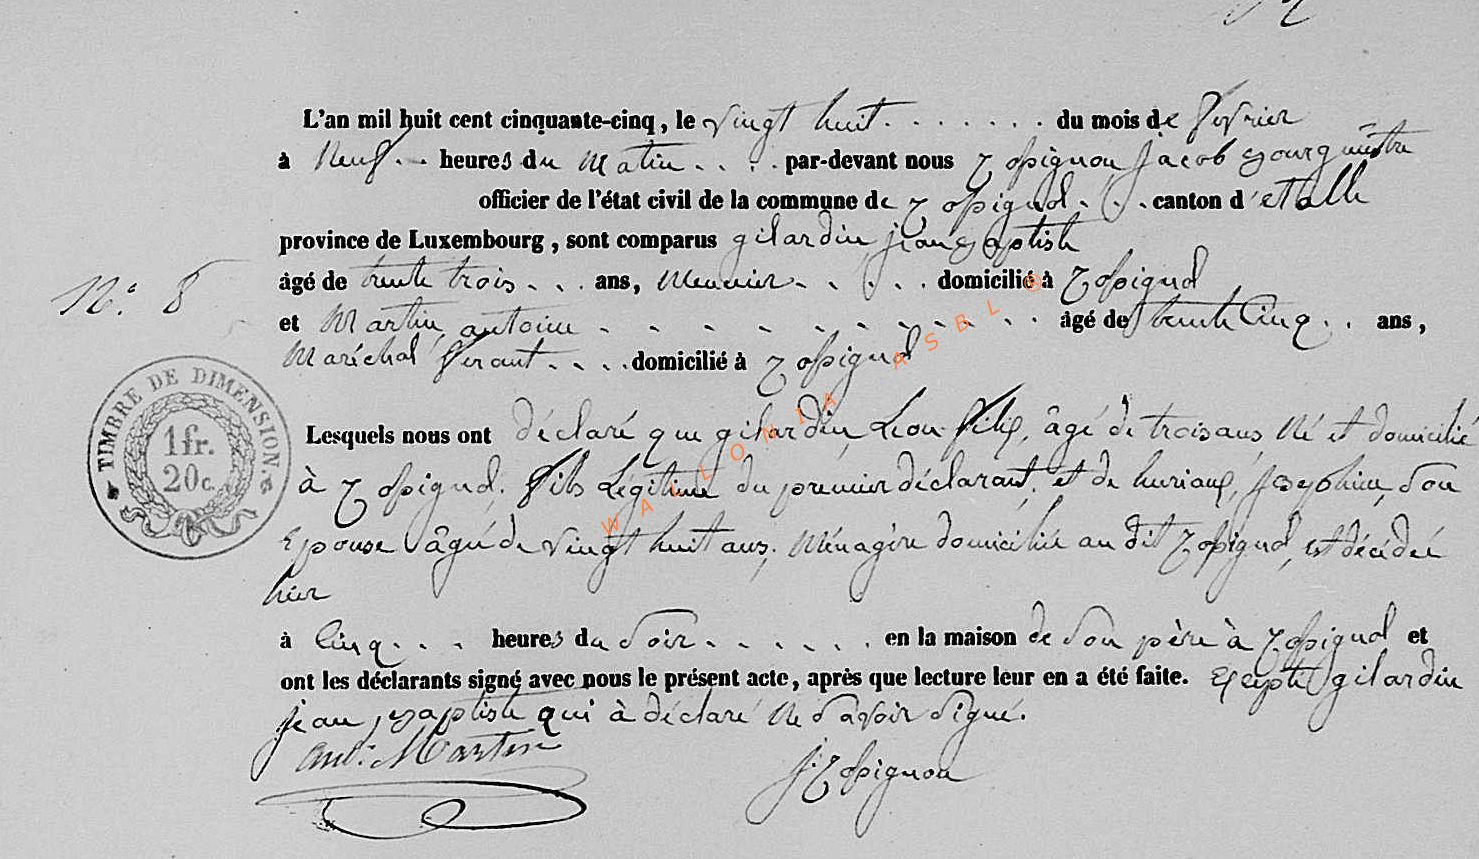 L'an mil huit cent cinquante-cinq, le vingt huit . . . . . . . du mois de fevrier
à Neuf . . . heures du Matin . . . . par-devant nous Rossignon Jacob Bourgmestre
officier de l'état civil de la commune de Rossignol . . . canton d'etalle
province de Luxembourg, sont comparus gilardin jean Baptiste
âgé de trente trois . . . ans, Meunier . . . . . domicilié à Rossignol
N.° 8
et Martin, antoine . . . . . . . . . . . âgé de trente Cinq . . ans,
Maréchal ferant . . . . domicilié à Rossignol
TIMBRE DE DIMENSION.
1 fr.
20 c.
Lesquels nous ont déclaré que gilardin Leon, âgé de trois ans Né et domicilié
à Rossignol, fils Legitime du premier déclarant, et de huriaux, Josephine, son
Epouse âgée de vingt huit ans, Ménagère domiciliée au dit Rossignol, est décédée
hier
à Cinq . . . heures du soir . . . . . . en la maison de son père à Rossignol et
ont les déclarants signé avec nous le présent acte, après que lecture leur en a été faite. Excepté gilardin
jean, Baptiste qui à déclaré Ne savoir signé.
Ant. Martin
J Rossignon
WALLONIA ASBL ©